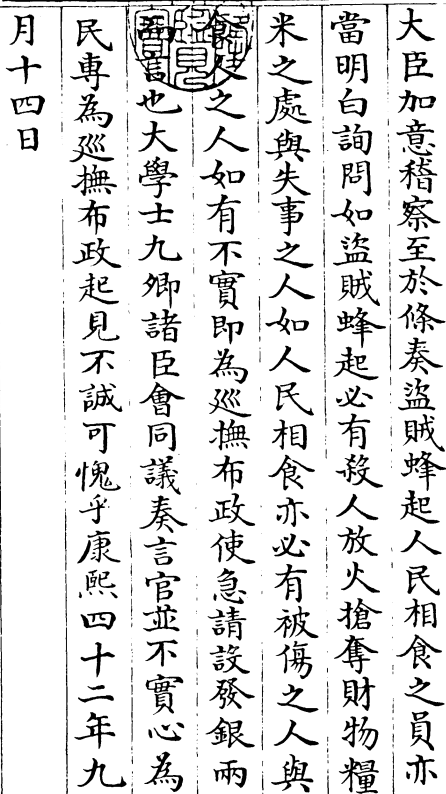 大臣加意稽察至於條奏盜賊蜂起人民相食之員亦
當明白詢問如盜賊蜂起必有殺人放火搶奪財物糧
米之處與失事之人如人民相食亦必有被傷之人與
食人之人如有不實即為巡撫布政使急請設發銀兩
而言也大學士九卿諸臣會同議奏言官並不實心為
民專為巡撫布政起見不誠可愧乎康熙四十二年九
月十四日